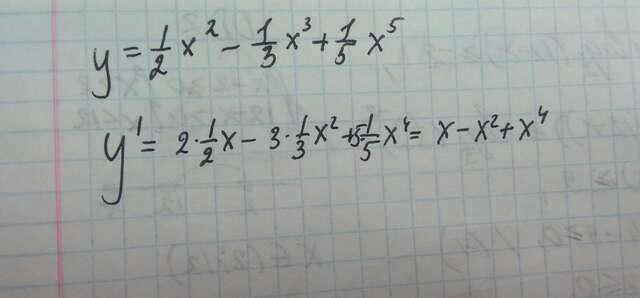 y = 1/2 x² − 1/3 x³ + 1/5 x⁵
y' = 2·1/2 x − 3·1/3 x² + 5 1/5 x⁴ = x − x² + x⁴